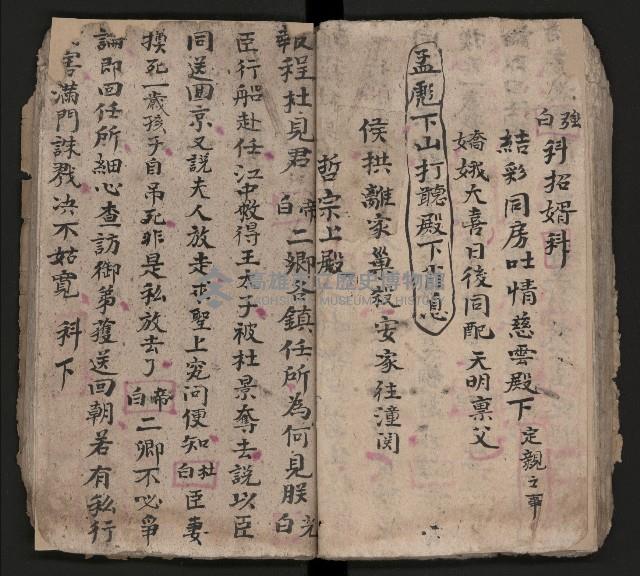 強白 科招婿科
結彩同房吐情慈雲殿下 定親之事
嬌娥大喜日後同配 天明禀父
孟彪下山打聽殿下消息
侯拱離家 安家往潼関
哲宗上殿
報程杜見君 帝白 二卿各鎮任所為何見朕 光白
臣行船赴任江中救得王太子被杜景奪去説以臣
同送囬京又説夫人放走求聖上究问便知 杜白 臣妻
換死一歲孩子自吊死非是私放去了 帝白 二卿不必爭
論即囬任所細心查訪御弟獲送回朝若有私行
害滿門誅戮决不姑寬 科下
高雄市立歷史博物館
KAOHSIUNG MUSEUM OF HISTORY